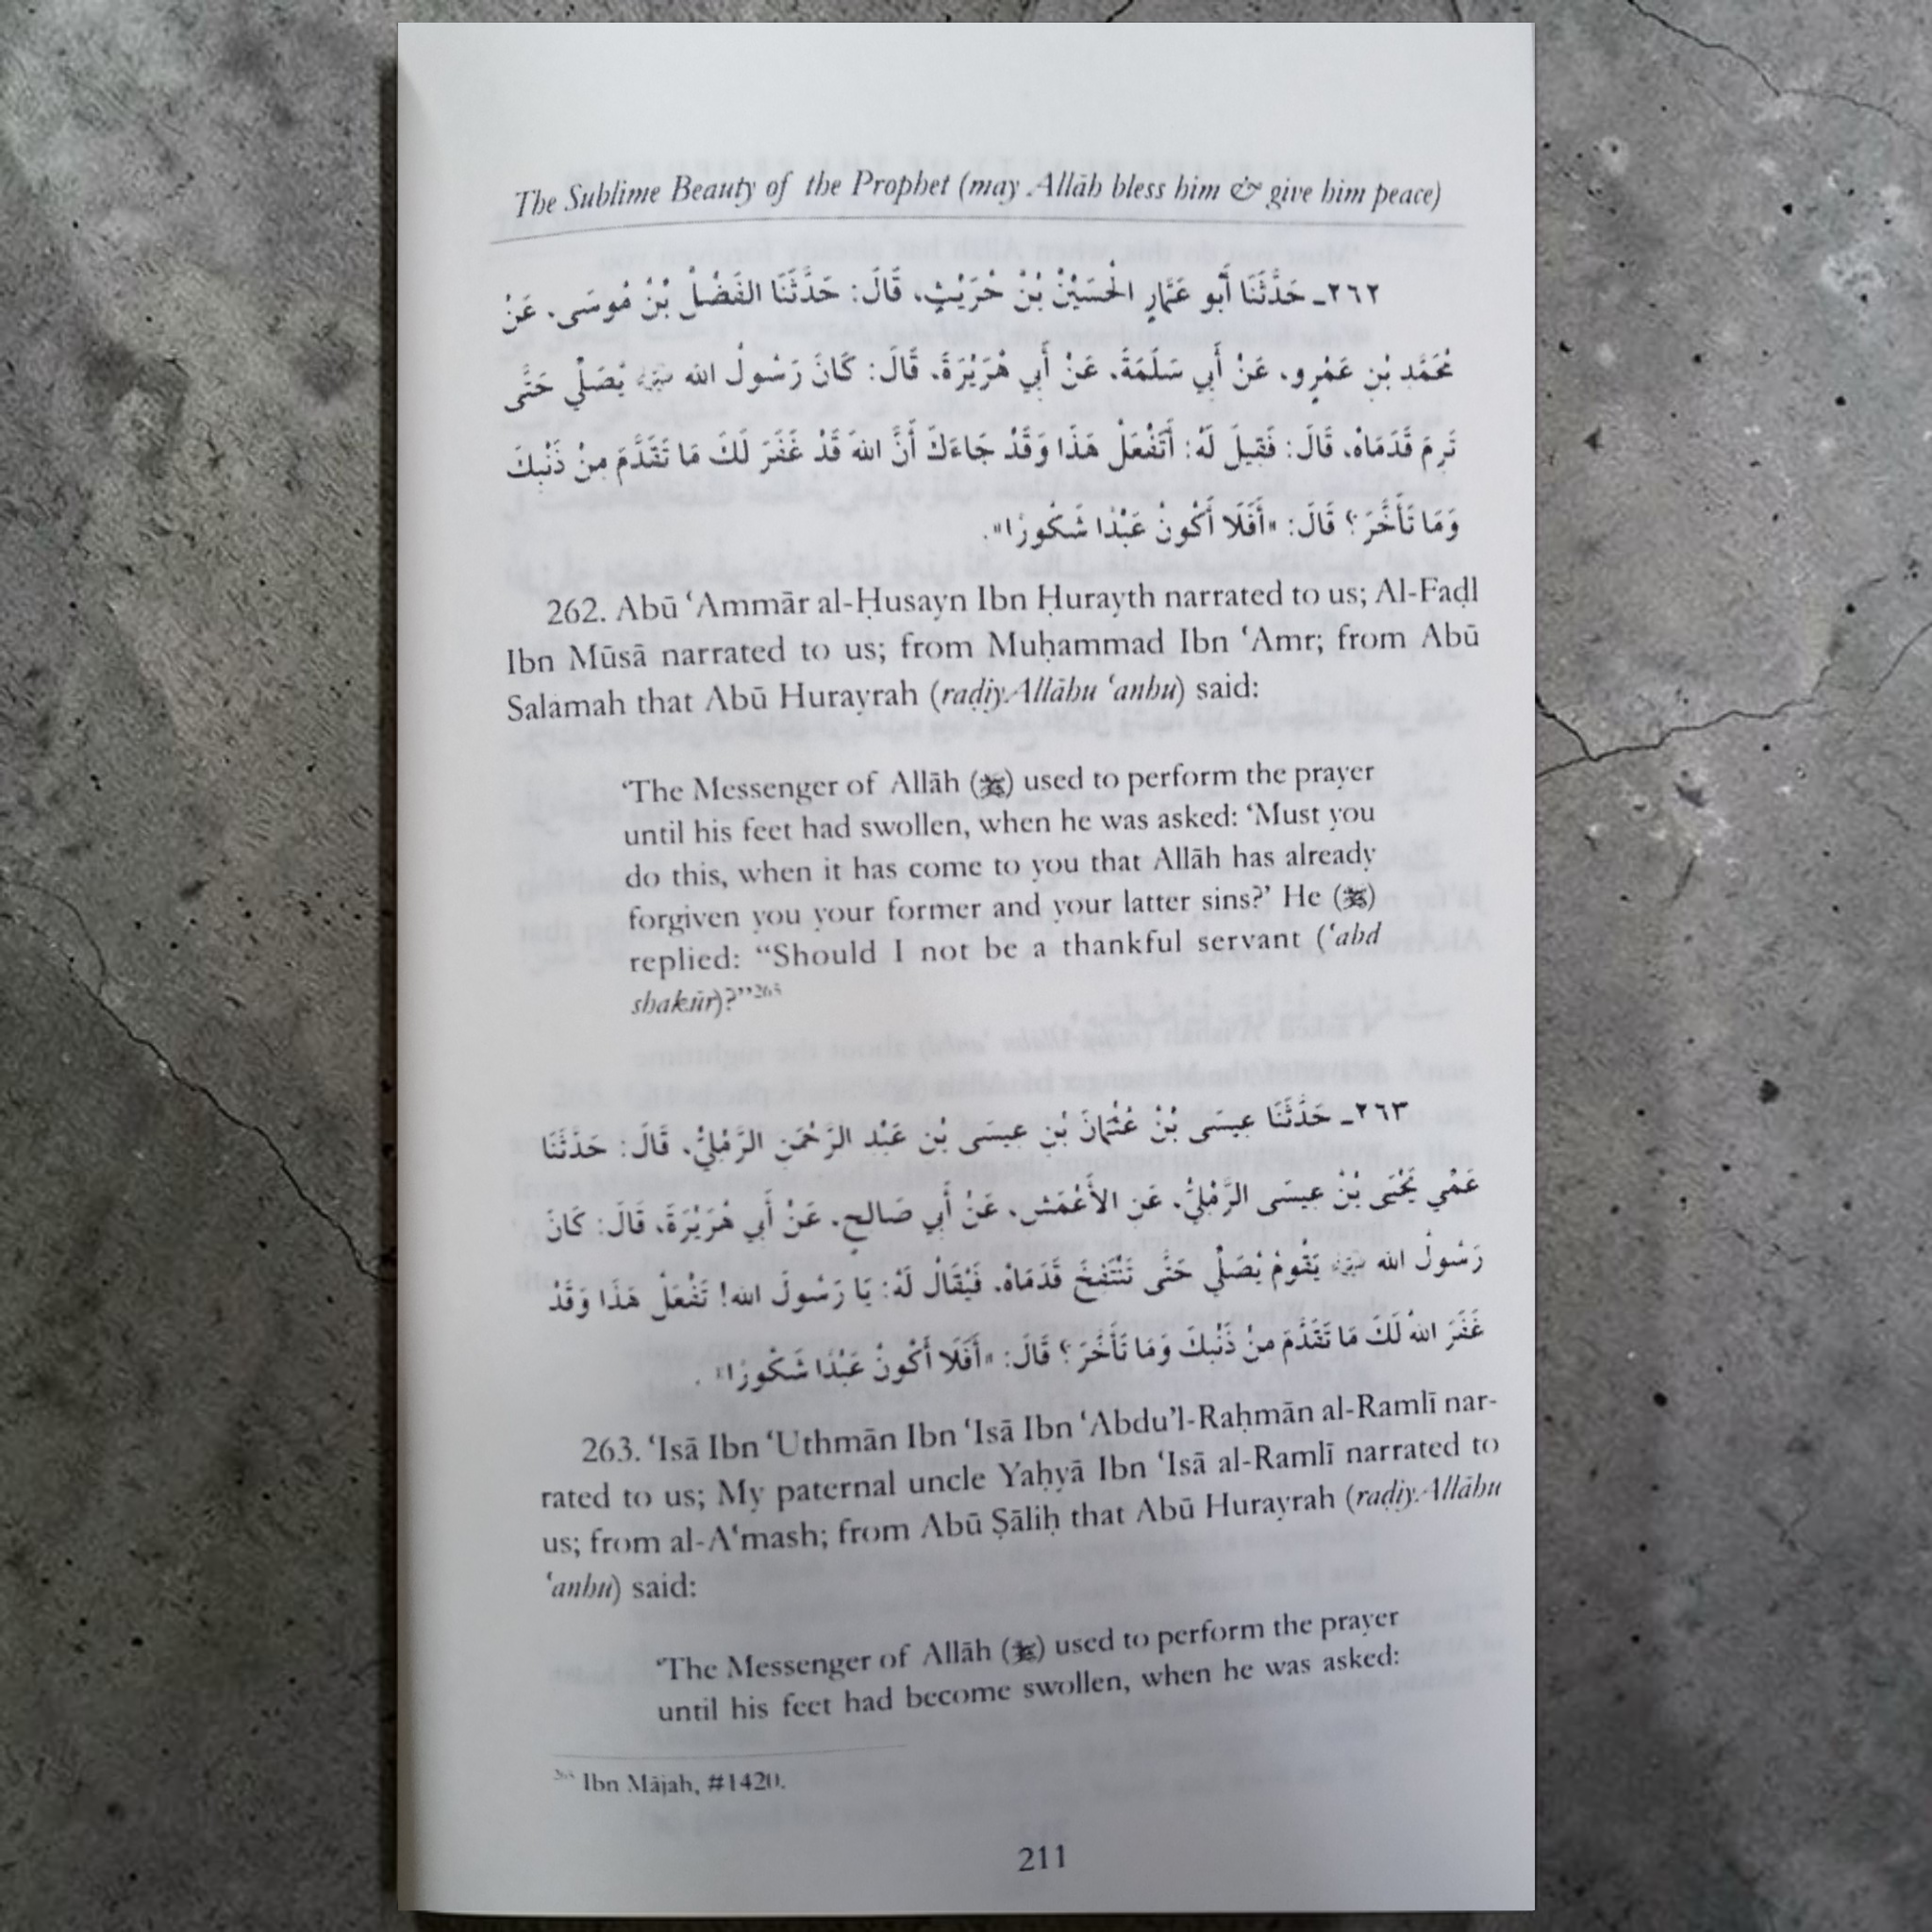 The Sublime Beauty of the Prophet (may Allāh bless him & give him peace)
٢٦٢ـ حَدَّثَنَا أَبُو عَمَّارٍ الْحُسَيْنُ بْنُ حُرَيْثٍ، قَالَ: حَدَّثَنَا الفَضْلُ بْنُ مُوسَى، عَنْ
مُحَمَّدِ بْنِ عَمْرٍو، عَنْ أَبِي سَلَمَةَ، عَنْ أَبِي هُرَيْرَةَ، قَالَ: كَانَ رَسُولُ اللهِ ﷺ يُصَلِّي حَتَّى
تَرِمَ قَدَمَاهُ، قَالَ: فَقِيلَ لَهُ: أَتَفْعَلُ هَذَا وَقَدْ جَاءَكَ أَنَّ اللهَ قَدْ غَفَرَ لَكَ مَا تَقَدَّمَ مِنْ ذَنْبِكَ
وَمَا تَأَخَّرَ؟ قَالَ: «أَفَلَا أَكُونُ عَبْدًا شَكُورًا».
262. Abū ‘Ammār al-Ḥusayn Ibn Ḥurayth narrated to us; Al-Faḍl
Ibn Mūsā narrated to us; from Muḥammad Ibn ‘Amr; from Abū
Salamah that Abū Hurayrah (raḍiy.Allāhu ‘anhu) said:
‘The Messenger of Allāh (ﷺ) used to perform the prayer
until his feet had swollen, when he was asked: ‘Must you
do this, when it has come to you that Allāh has already
forgiven you your former and your latter sins?’ He (ﷺ)
replied: “Should I not be a thankful servant (‘abd
shakūr)?”²⁶⁵
٢٦٣ـ حَدَّثَنَا عِيسَى بْنُ عُثْمَانَ بْنِ عِيسَى بْنِ عَبْدِ الرَّحْمَنِ الرَّمْلِيُّ، قَالَ: حَدَّثَنَا
عَمِّي يَحْيَى بْنُ عِيسَى الرَّمْلِيُّ، عَنِ الأَعْمَشِ، عَنْ أَبِي صَالِحٍ، عَنْ أَبِي هُرَيْرَةَ، قَالَ: كَانَ
رَسُولُ اللهِ ﷺ يَقُومُ يُصَلِّي حَتَّى تَنْتَفِخَ قَدَمَاهُ، فَيُقَالُ لَهُ: يَا رَسُولَ اللهِ! تَفْعَلُ هَذَا وَقَدْ
غَفَرَ اللهُ لَكَ مَا تَقَدَّمَ مِنْ ذَنْبِكَ وَمَا تَأَخَّرَ؟ قَالَ: «أَفَلَا أَكُونُ عَبْدًا شَكُورًا».
263. ‘Isā Ibn ‘Uthmān Ibn ‘Isā Ibn ‘Abdu’l-Raḥmān al-Ramlī nar-
rated to us; My paternal uncle Yaḥyā Ibn ‘Isā al-Ramlī narrated to
us; from al-A‘mash; from Abū Ṣāliḥ that Abū Hurayrah (raḍiy.Allāhu
‘anhu) said:
‘The Messenger of Allāh (ﷺ) used to perform the prayer
until his feet had become swollen, when he was asked:
Ibn Mājah, #1420.
211